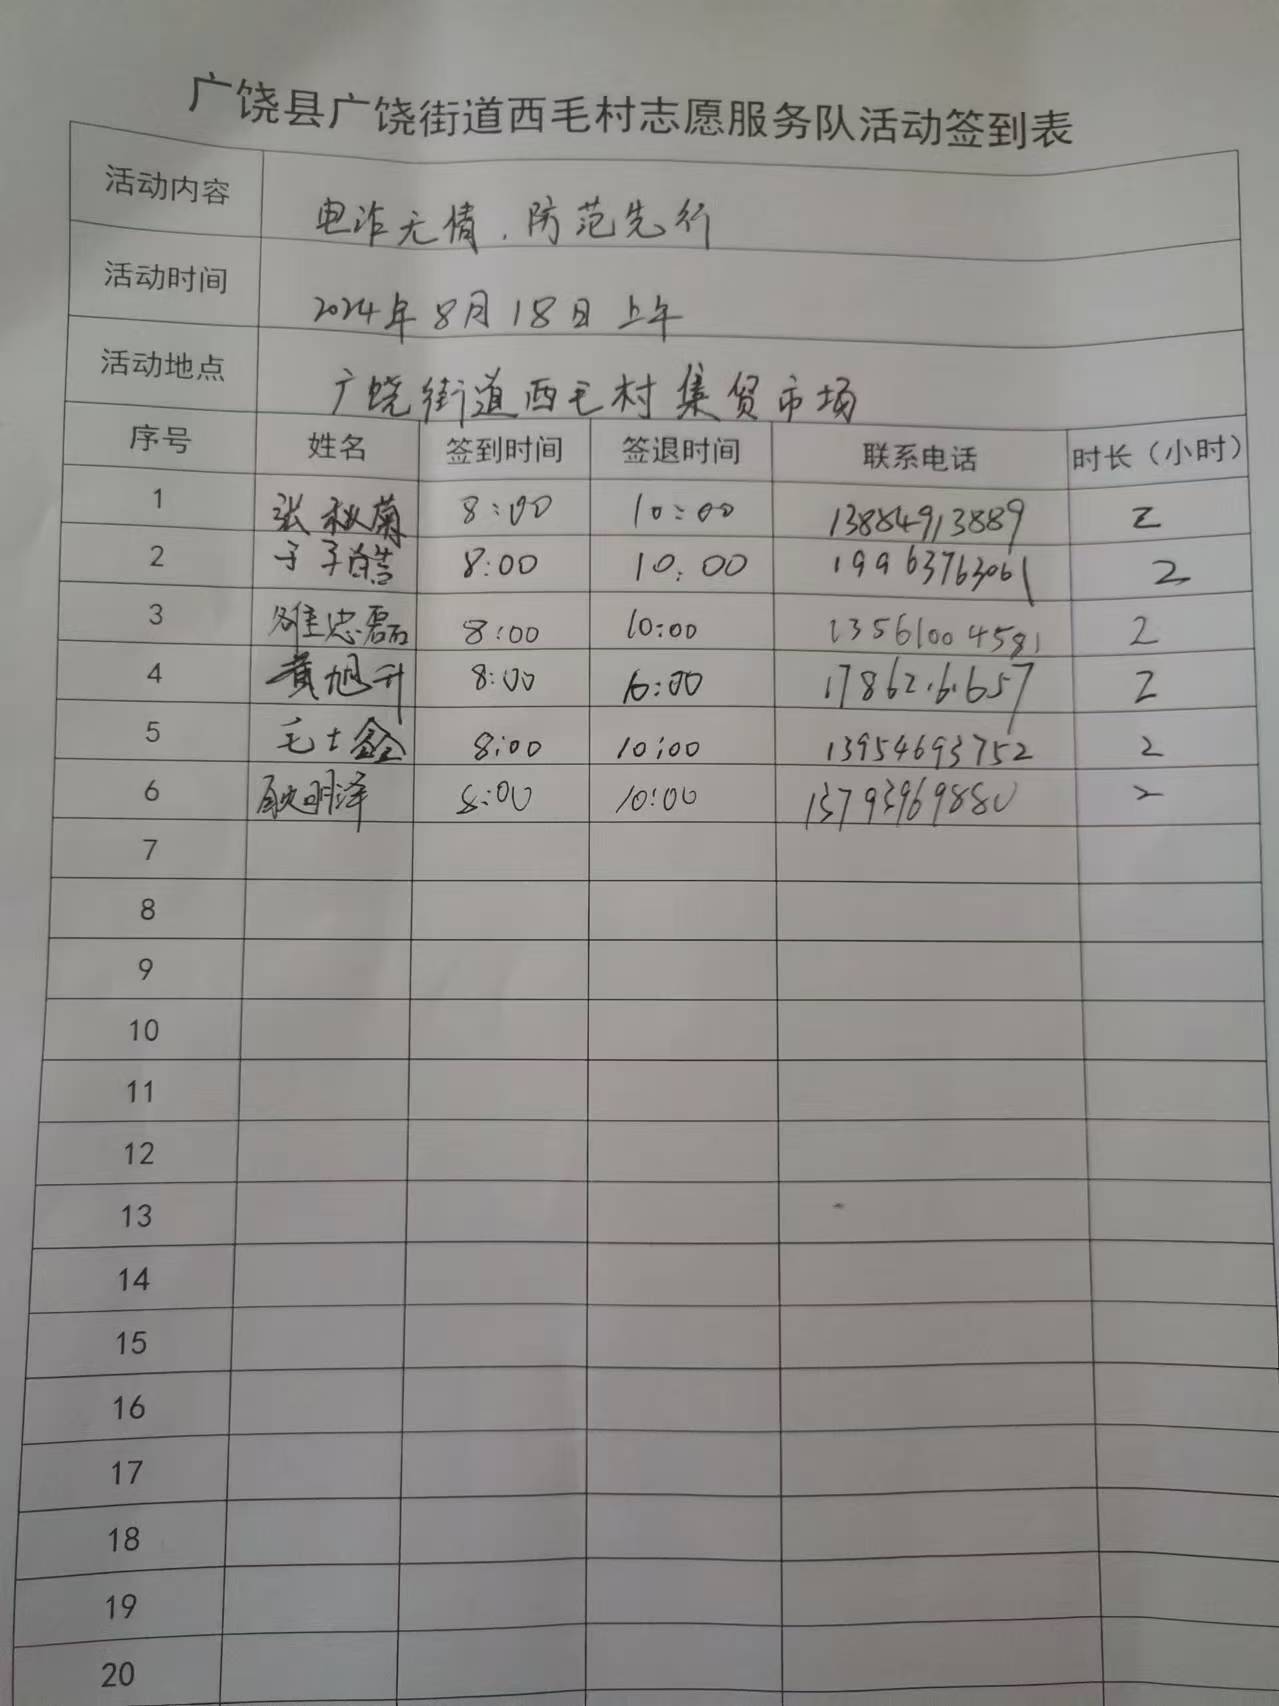 广饶县广饶街道西毛村志愿服务队活动签到表
活动内容 电诈无情.防范先行
活动时间 2024年8月18日上午
活动地点 广饶街道西毛村集贸市场
序号 姓名 签到时间 签退时间 联系电话 时长（小时）
1 张秋菊 8:00 10:00 13884913889 2
2 于子皓 8:00 10:00 19963763061 2
3 忠磊 8:00 10:00 13561004581 2
4 黄旭升 8:00 10:00 2
5 毛士鑫 8:00 10:00 13954693752 2
6 耿明泽 8:00 10:00 13793969880 2
7
8
9
10
11
12
13
14
15
16
17
18
19
20